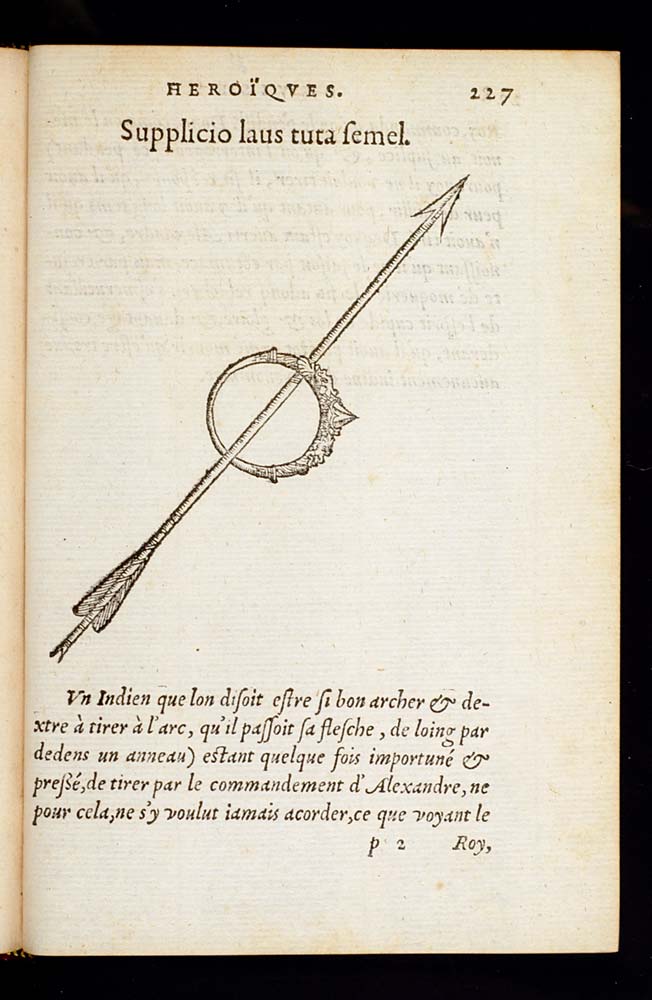 HEROÏQVES. 227
Supplicio laus tuta ſemel.
Vn Indien que lon diſoit eſtre ſi bon archer & de-
xtre à tirer à l'arc, qu'il paſſoit ſa fleſche, de loing par
dedens un anneau) eſtant quelque fois importuné &
preßé, de tirer par le commandement d'Alexandre, ne
pour cela, ne s'y voulut iamais acorder, ce que voyant le
p 2 Roy,